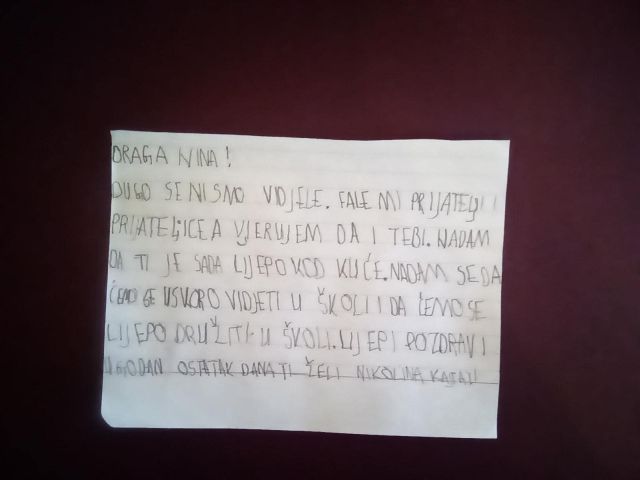 DRAGA NINA!
DUGO SE NISMO VIDJELE. FALE MI PRIJATELJI I
PRIJATELJICE A VJERUJEM DA I TEBI. NADAM
DA TI JE SADA LIJEPO KOD KUĆE. NADAM SE DA
ĆEMO SE USKORO VIDJETI U ŠKOLI I DA ĆEMO SE
LIJEPO DRUŽITI U ŠKOLI. LIJEPI POZDRAV I
UGODAN OSTATAK DANA TI ŽELI NIKOLINA